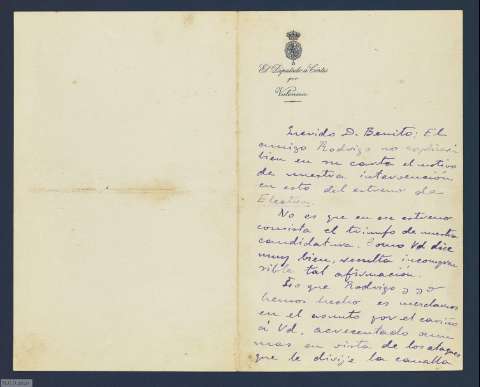 El Diputado a Cortes
por
Valencia
Querido D. Benito: El
amigo Rodrigo no explicó
bien en su carta el motivo
de nuestra intervención
en esto del estreno de
Electra.
No es que en ese estreno
consista el triunfo de nuestra
candidatura. Como Vd dice
muy bien, resulta incompren
sible tal afirmación.
Lo que Rodrigo y yo
hemos hecho es mezclarnos
en el asunto por el cariño
á Vd, acrecentado aun
mas en vista de los ataques
que le dirije la canalla